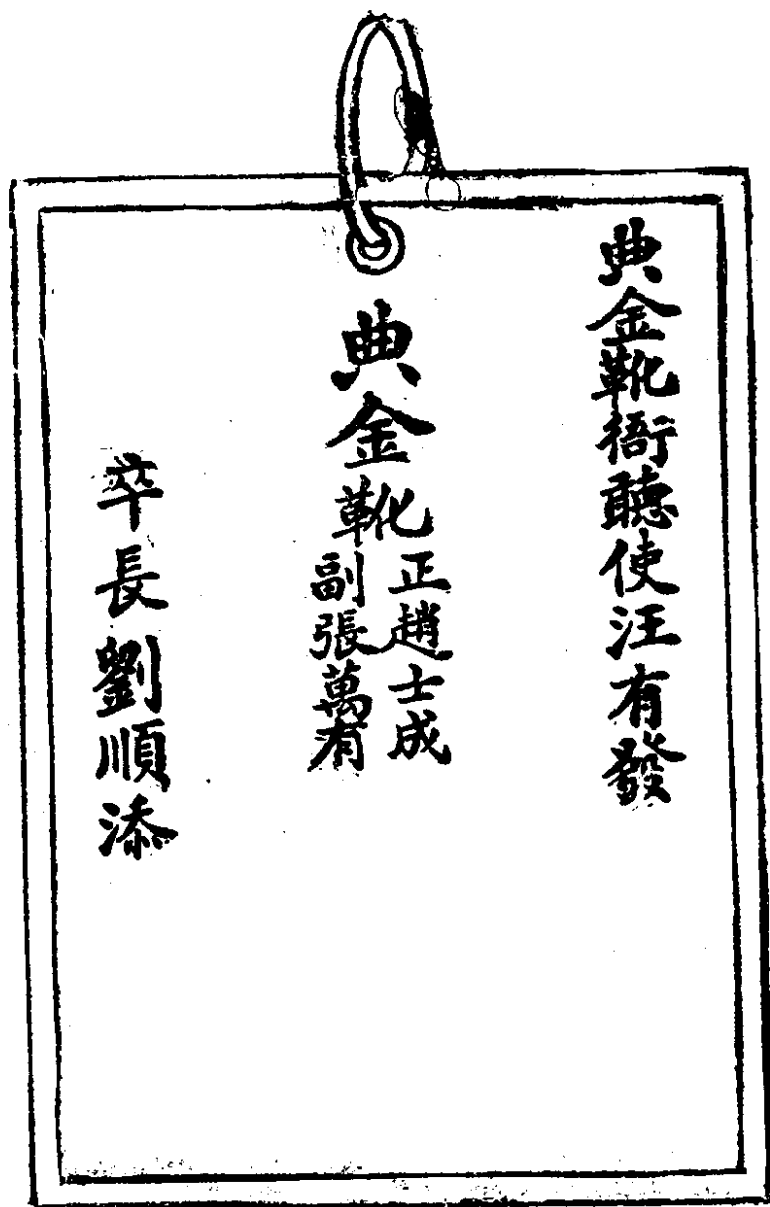 典金靴衙聽使汪有發
典金靴
正趙士成
副張萬有
卒長劉順添